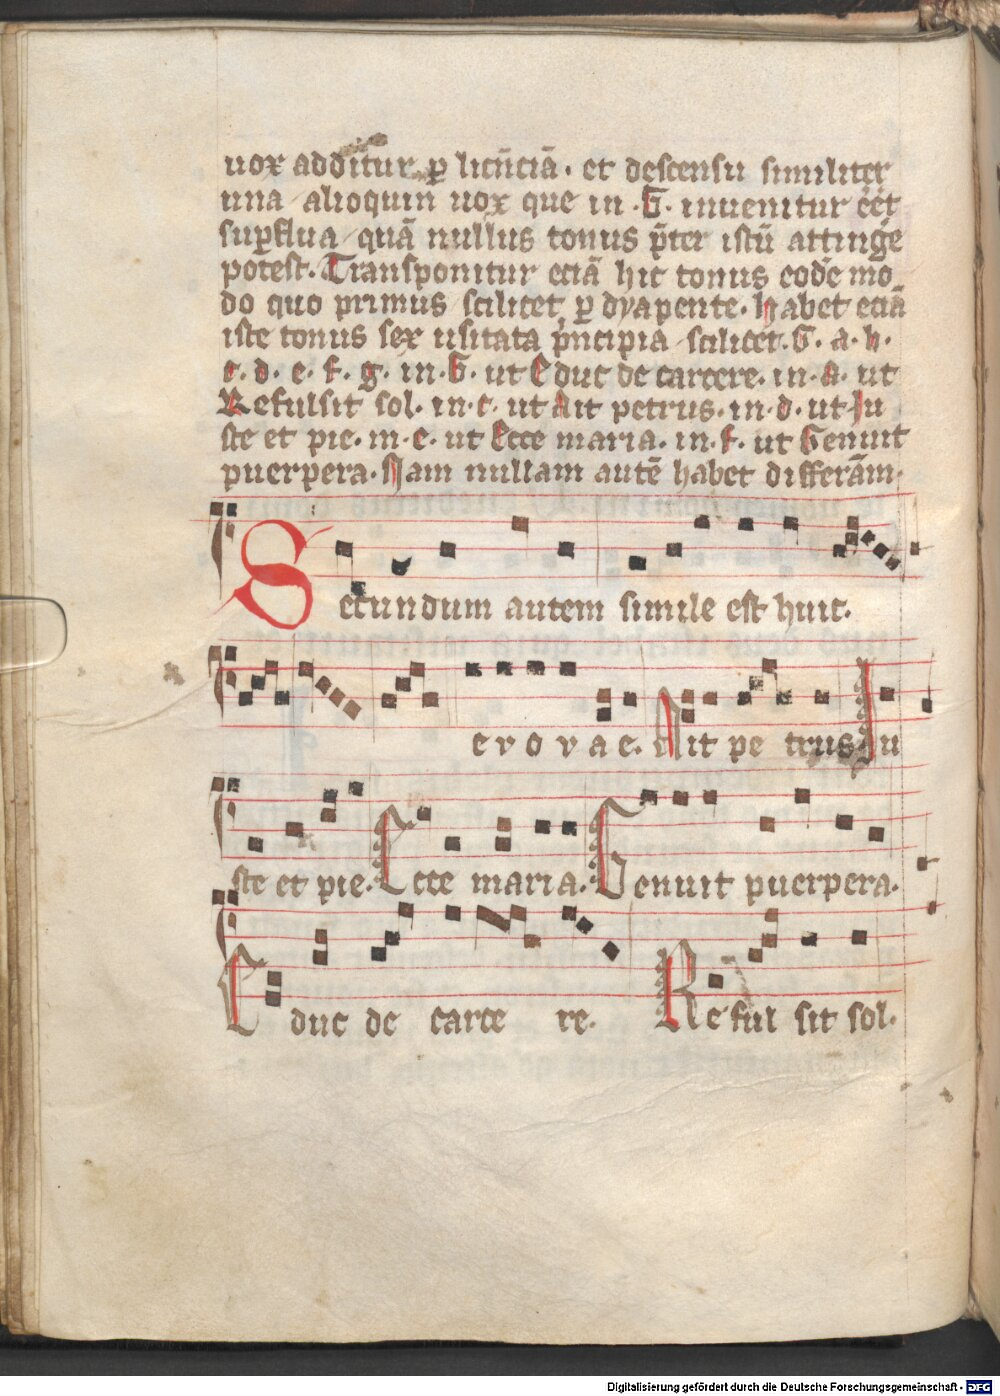 uox additur p̲ licn̄ciā. et descensu similiter
una alioquin uox que in .G. inuenitur eēt
sup̲flua quā nullus tonus p̄ter istū attinge
potest. Transponitur eciā hic tonus eodē mo
do quo primus scilicet p̲ dyapente. habet eciā
iste tonus sex usitata p̄ncipia scilicet .G. a. h.
c. d. e. f. g. in .G. ut Educ de carcere. in .a. ut
Refulsit sol. in .c. ut Ait petrus. in .d. ut Ju
ste et pie. in .e. ut Ecce maria. in .f. ut Genuit
puerpera. Nam nullam autē habet differām.
Secundum autem simile est huic.
e v o v a e. Ait pe trus Ju
ste et pie. Ecce maria. Genuit puerpera.
Educ de carce re. Reful sit sol.
Digitalisierung gefördert durch die Deutsche Forschungsgemeinschaft - DFG